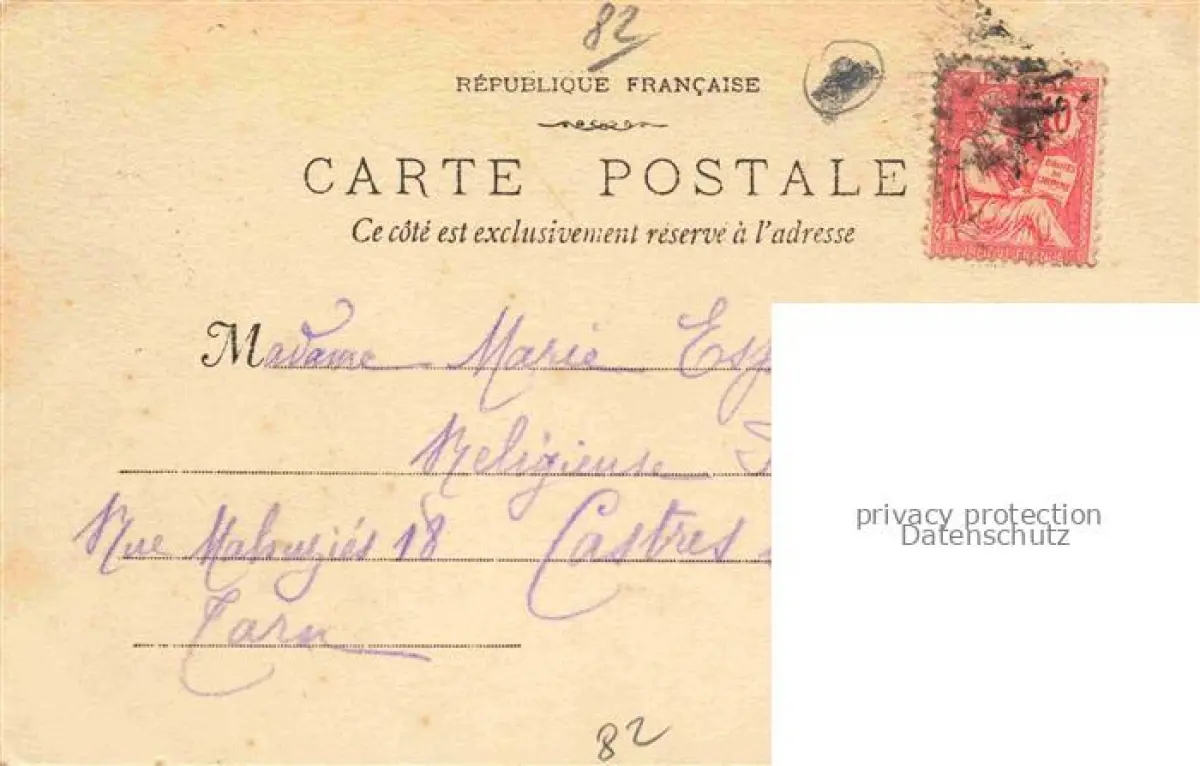 82
RÉPUBLIQUE FRANÇAISE
CARTE POSTALE
Ce côté est exclusivement réservé à l'adresse
10
Madame Marie
Religieuse
Rue 18 Castres
Tarn
privacy protection
Datenschutz
82